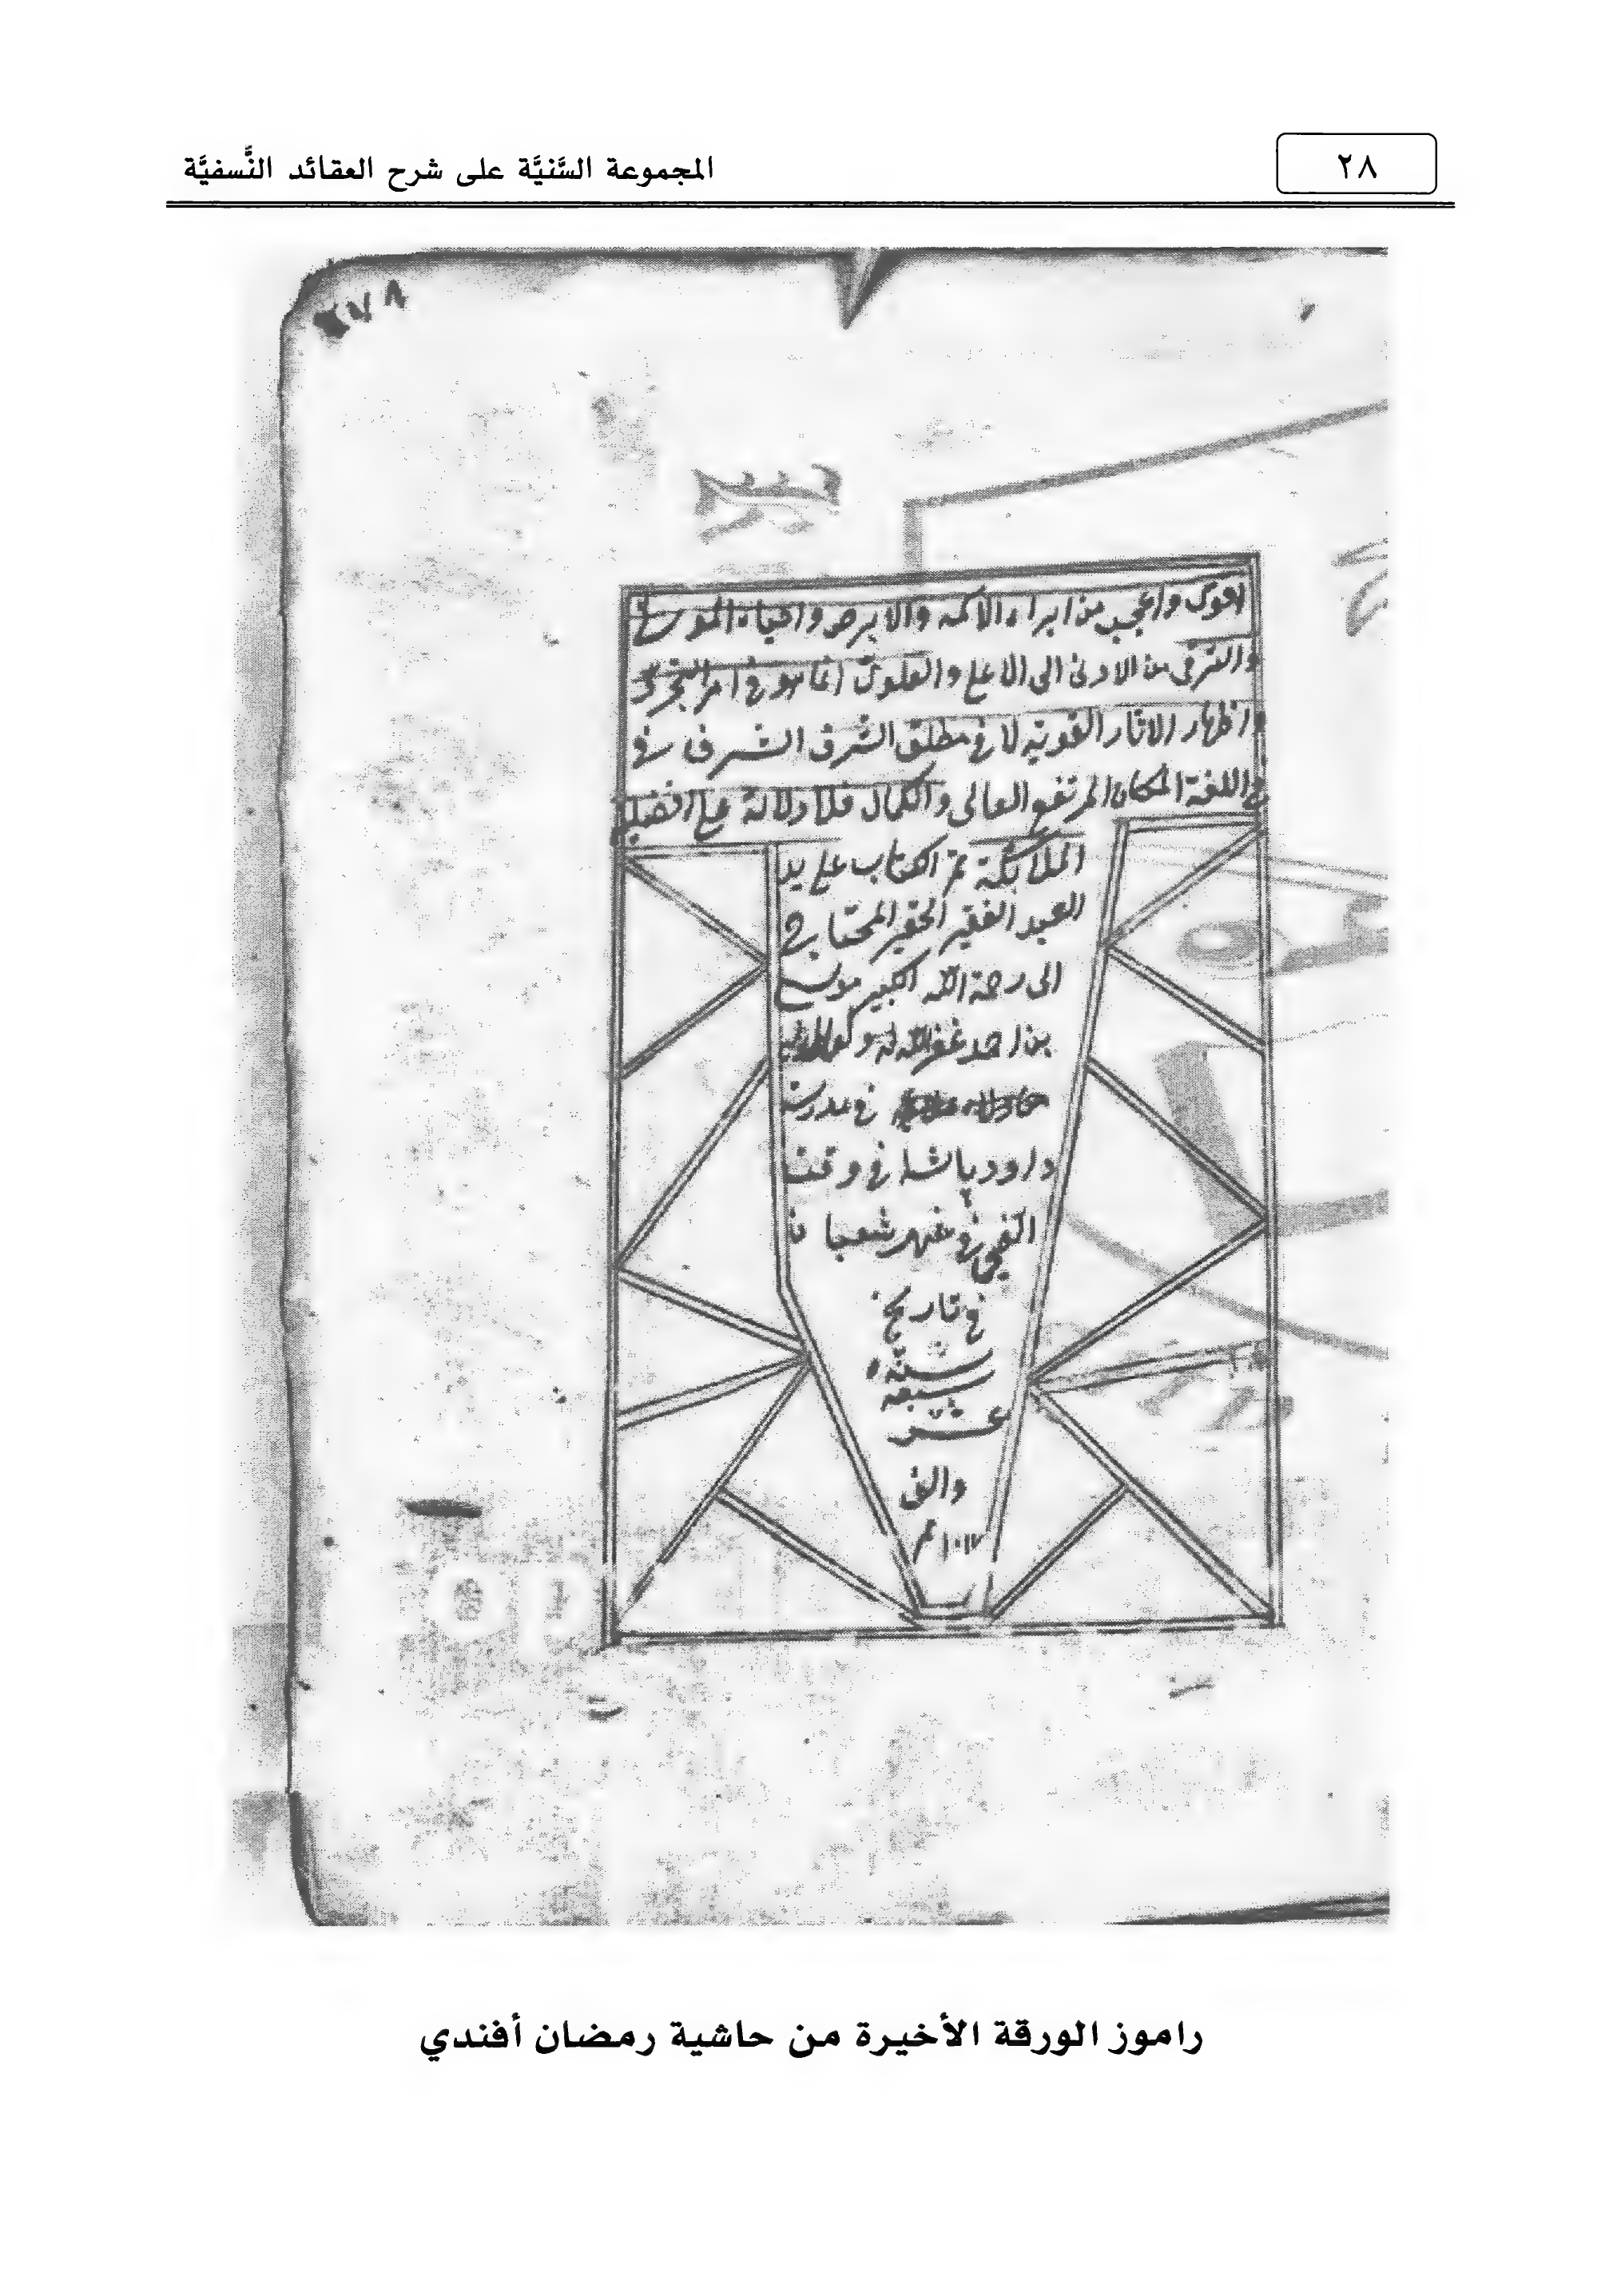 ٢٨
المجموعة السَّنيَّة على شرح العقائد النَّسفيَّة
٧٨
اقوى واعجب من ابراء الاكمه والابرص واحياء الموتى
والترقى من الادنى الى الاعلى والعلوى انما هو في امر التجرد
واظهار الاثار القوية لا في مطلق الشرف الشرف في
في اللغة المكان المرتفع العالى والكمال فلا دلالة على افضلية
الملائكة تم الكتاب على يد
العبد الفقير الحقير المحتاج
الى رحمة الله الكبير موسى
بن احمد غفر الله له
في مدرسة
داود پاشا في وقت
في شهر شعبان
في تاريخ
سنة
سبعة
عشر
والف
١٠١٧
راموز الورقة الأخيرة من حاشية رمضان أفندي